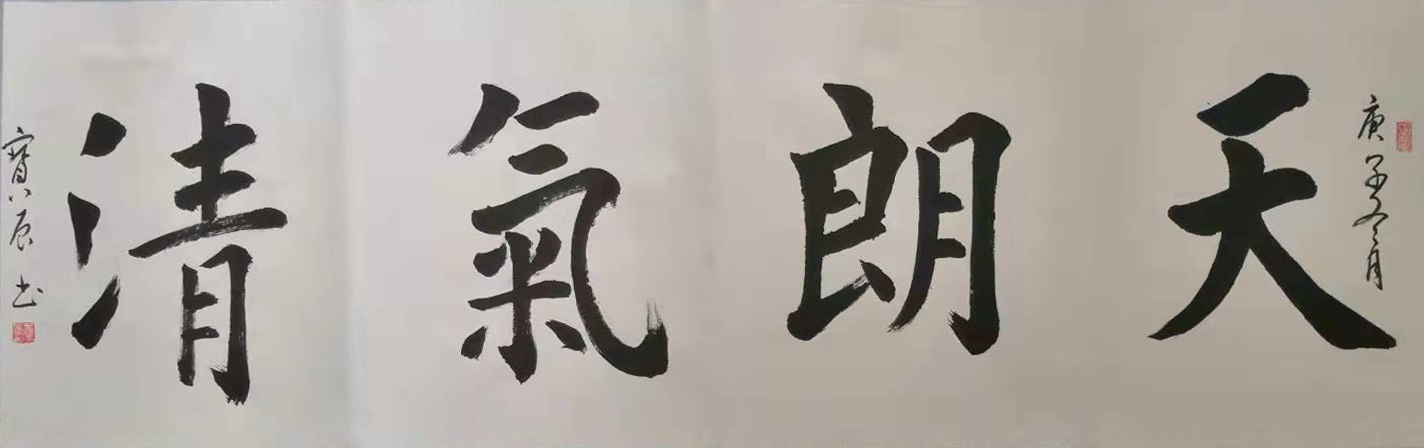 庚子冬月
天朗氣清
寶辰书